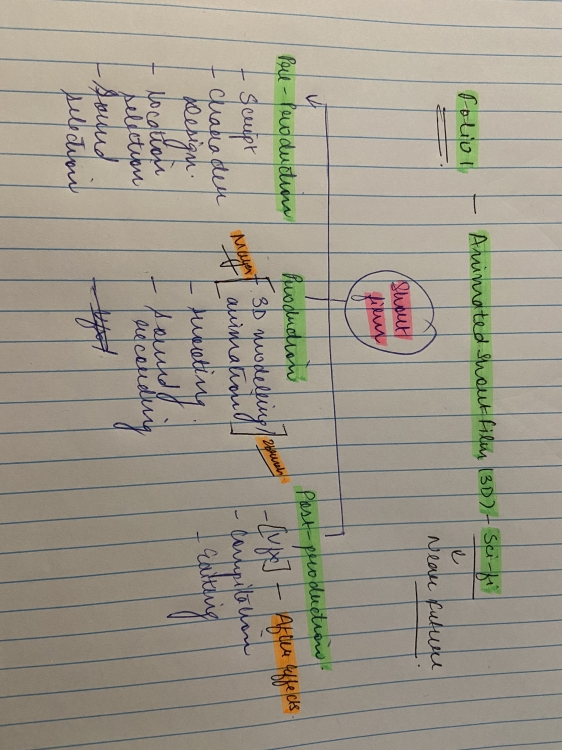 Folio 1 — Animated Short film (3D) - Sci-fi
&
Near future.
Short
film
Pre-Production
- Script
- Character
Design.
- Location
selection
- Sound
selection
Production
Maya
[3D modelling/
animation]
- shooting
- sound
recording
- Vfx
Post-production.
- [Vfx] - After Effects.
- Compitition
- Editing